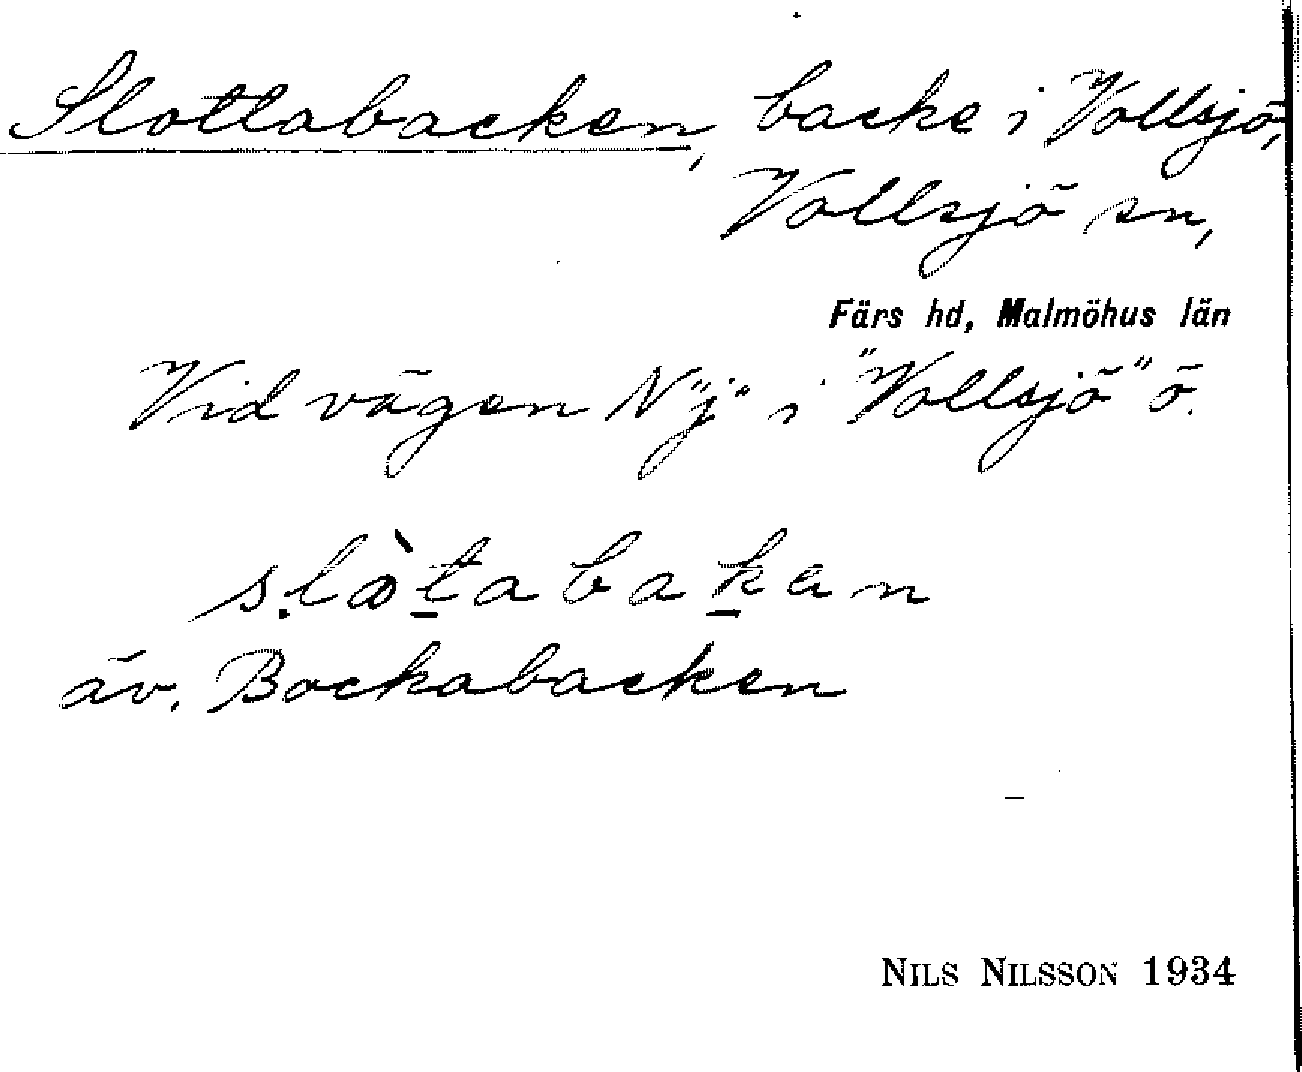 Slottabacken, backe i Vollsjö,
Vollsjö sn,
Färs hd, Malmöhus län
Vid vägen N "j" i "Vollsjö" ö.
slòtabakan
äv. Bockabacken
NILS NILSSON 1934